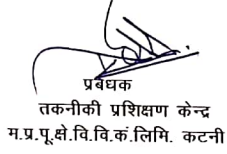 प्रबंधक
तकनीकी प्रशिक्षण केन्द्र
म.प्र.पू.क्षे.वि.वि.कं.लिमि. कटनी